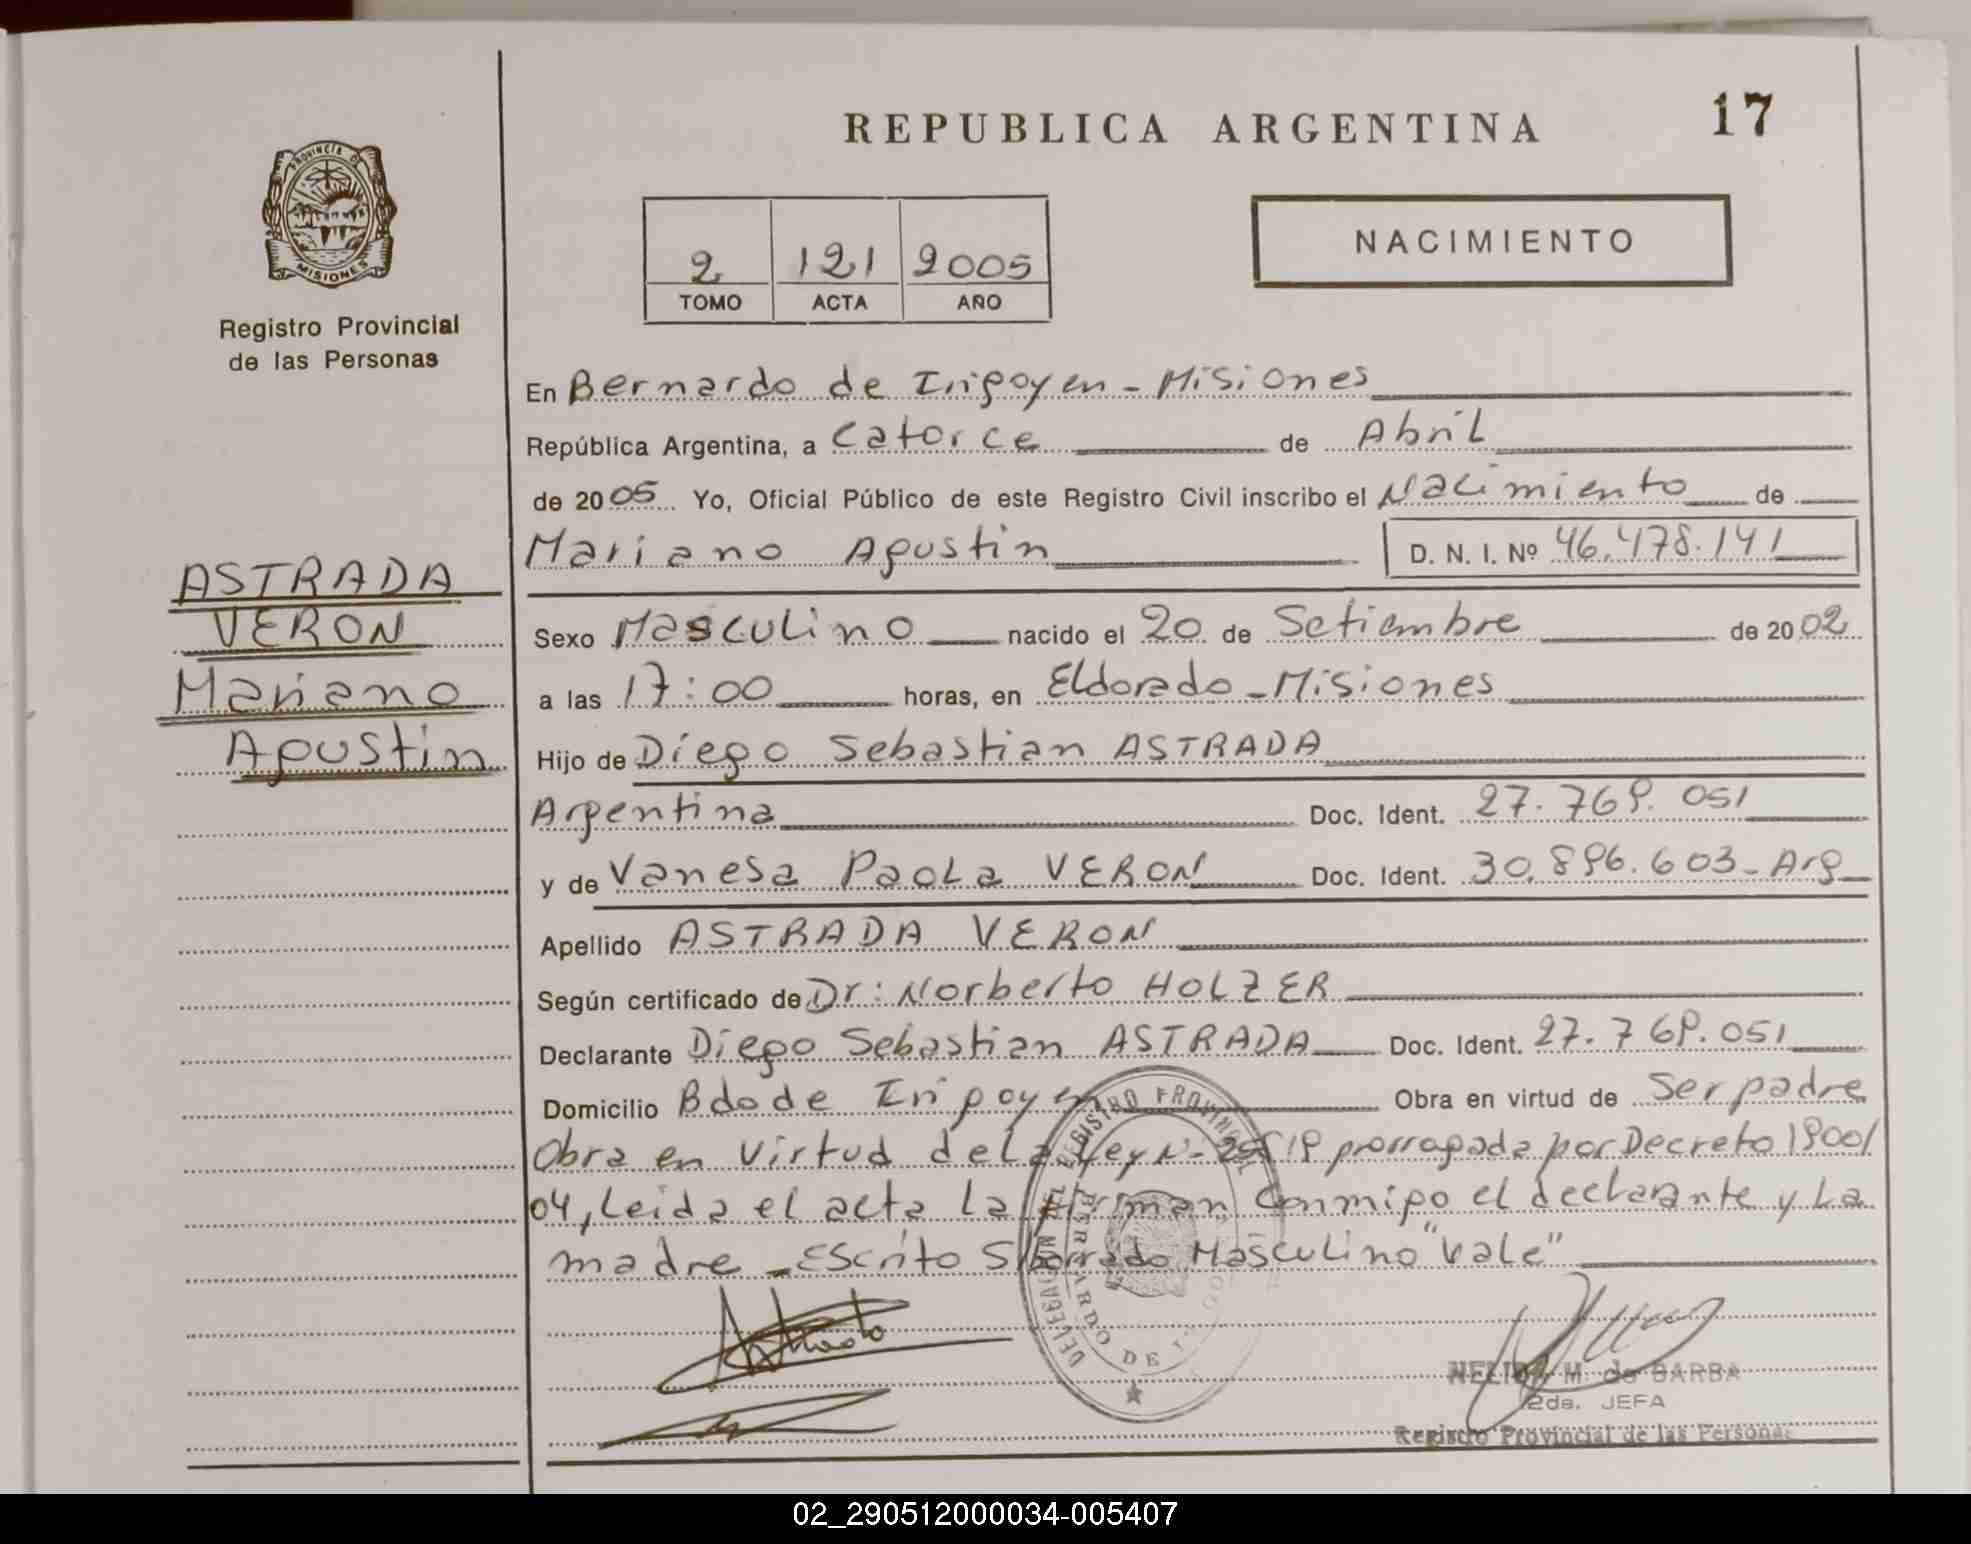 REPUBLICA ARGENTINA
17
PROVINCIA DE
MISIONES
Registro Provincial
de las Personas
2 121 2005
TOMO ACTA AÑO
NACIMIENTO
En Bernardo de Irigoyen - Misiones
República Argentina, a Catorce de Abril
de 2005 Yo, Oficial Público de este Registro Civil inscribo el Nacimiento de
Mariano Agustin D. N. I. Nº 46.478.141
ASTRADA
VERON
Mariano
Agustin
Sexo Masculino nacido el 20 de Setiembre de 2002
a las 17:00 horas, en Eldorado - Misiones
Hijo de Diego Sebastian ASTRADA
Argentina Doc. Ident. 27.769.051
y de Vanesa Paola VERON Doc. Ident. 30.896.603 - Arg
Apellido ASTRADA VERON
Según certificado de Dr: Norberto HOLZER
Declarante Diego Sebastian ASTRADA Doc. Ident. 27.769.051
Domicilio Bdo de Irigoyen Obra en virtud de Ser padre
Obra en Virtud de La Ley N- prorrogada por Decreto 1900/
04, Leida el acta La firman Conmigo el declarante y La
madre - Escrito S/borrado Masculino "Vale"
DELEGACION DEL REGISTRO PROVINCIAL
BERNARDO DE
NELIDA M. de BARBA
2da. JEFA
Registro Provincial de las Personas
02_290512000034-005407